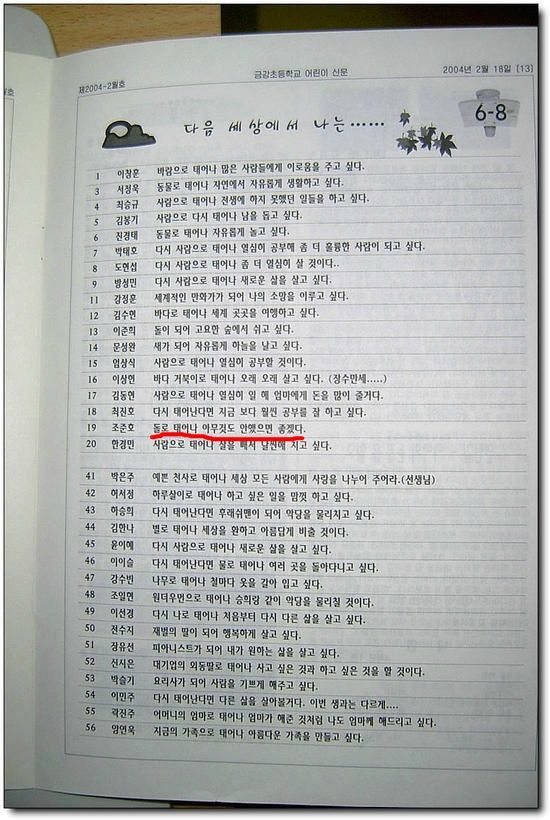 제2004-2월호
금강초등학교 어린이 신문
2004년 2월 18일 [13]
6-8
다음 세상에서 나는……
1 이창훈 바람으로 태어나 많은 사람들에게 이로움을 주고 싶다.
3 서정욱 동물로 태어나 자연에서 자유롭게 생활하고 싶다.
4 최승규 사람으로 태어나 전생에 하지 못했던 일들을 하고 싶다.
5 김봉기 사람으로 다시 태어나 남을 돕고 싶다.
6 진경태 동물로 태어나 자유롭게 놀고 싶다.
7 박태호 다시 사람으로 태어나 열심히 공부해 좀 더 훌륭한 사람이 되고 싶다.
8 도현섭 다시 사람으로 태어나 좀 더 열심히 살 것이다..
9 방성민 다시 사람으로 태어나 새로운 삶을 살고 싶다.
11 강정훈 세계적인 만화가가 되어 나의 소망을 이루고 싶다.
12 김수현 바다로 태어나 세계 곳곳을 여행하고 싶다.
13 이준희 돌이 되어 고요한 숲에서 쉬고 싶다.
14 문성완 새가 되어 자유롭게 하늘을 날고 싶다.
15 엄상식 사람으로 태어나 열심히 공부할 것이다.
16 이상헌 바다 거북이로 태어나 오래 오래 살고 싶다. (장수만세.....)
17 김동현 사람으로 태어나 열심히 일 해 엄마에게 돈을 많이 줄거다.
18 최진호 다시 태어난다면 지금 보다 훨씬 공부를 잘 하고 싶다.
19 조준호 돌로 태어나 아무것도 안했으면 좋겠다.
20 한경민 사람으로 태어나 살을 빼서 날씬해 지고 싶다.
41 박은주 예쁜 천사로 태어나 세상 모든 사람에게 사랑을 나누어 주어라.(선생님)
42 허서정 하루살이로 태어나 하고 싶은 일을 맘껏 하고 싶다.
43 하승희 다시 태어난다면 후래쉬맨이 되어 악당을 물리치고 싶다.
44 김한나 별로 태어나 세상을 환하고 아름답게 비출 것이다.
45 윤이혜 다시 사람으로 태어나 새로운 삶을 살고 싶다.
46 이이슬 다시 태어난다면 물로 태어나 여러 곳을 돌아다니고 싶다.
47 강수빈 나무로 태어나 철마다 옷을 갈아 입고 싶다.
48 조일현 원더우먼으로 태어나 승희랑 같이 악당을 물리칠 것이다.
49 이선경 다시 나로 태어나 처음부터 다시 다른 삶을 살고 싶다.
50 전수지 재벌의 딸이 되어 행복하게 살고 싶다.
51 장유선 피아니스트가 되어 내가 원하는 삶을 살고 싶다.
52 신지은 대기업의 외동딸로 태어나 사고 싶은 것과 하고 싶은 것을 할 것이다.
53 박슬기 요리사가 되어 사람을 기쁘게 해주고 싶다.
54 이민주 다시 태어난다면 다른 삶을 살아볼거다. 이번 생과는 다르게....
55 곽진주 어머니의 엄마로 태어나 엄마가 해준 것처럼 나도 엄마께 해드리고 싶다.
56 엄연욱 지금의 가족으로 태어나 아름다운 가족을 만들고 싶다.